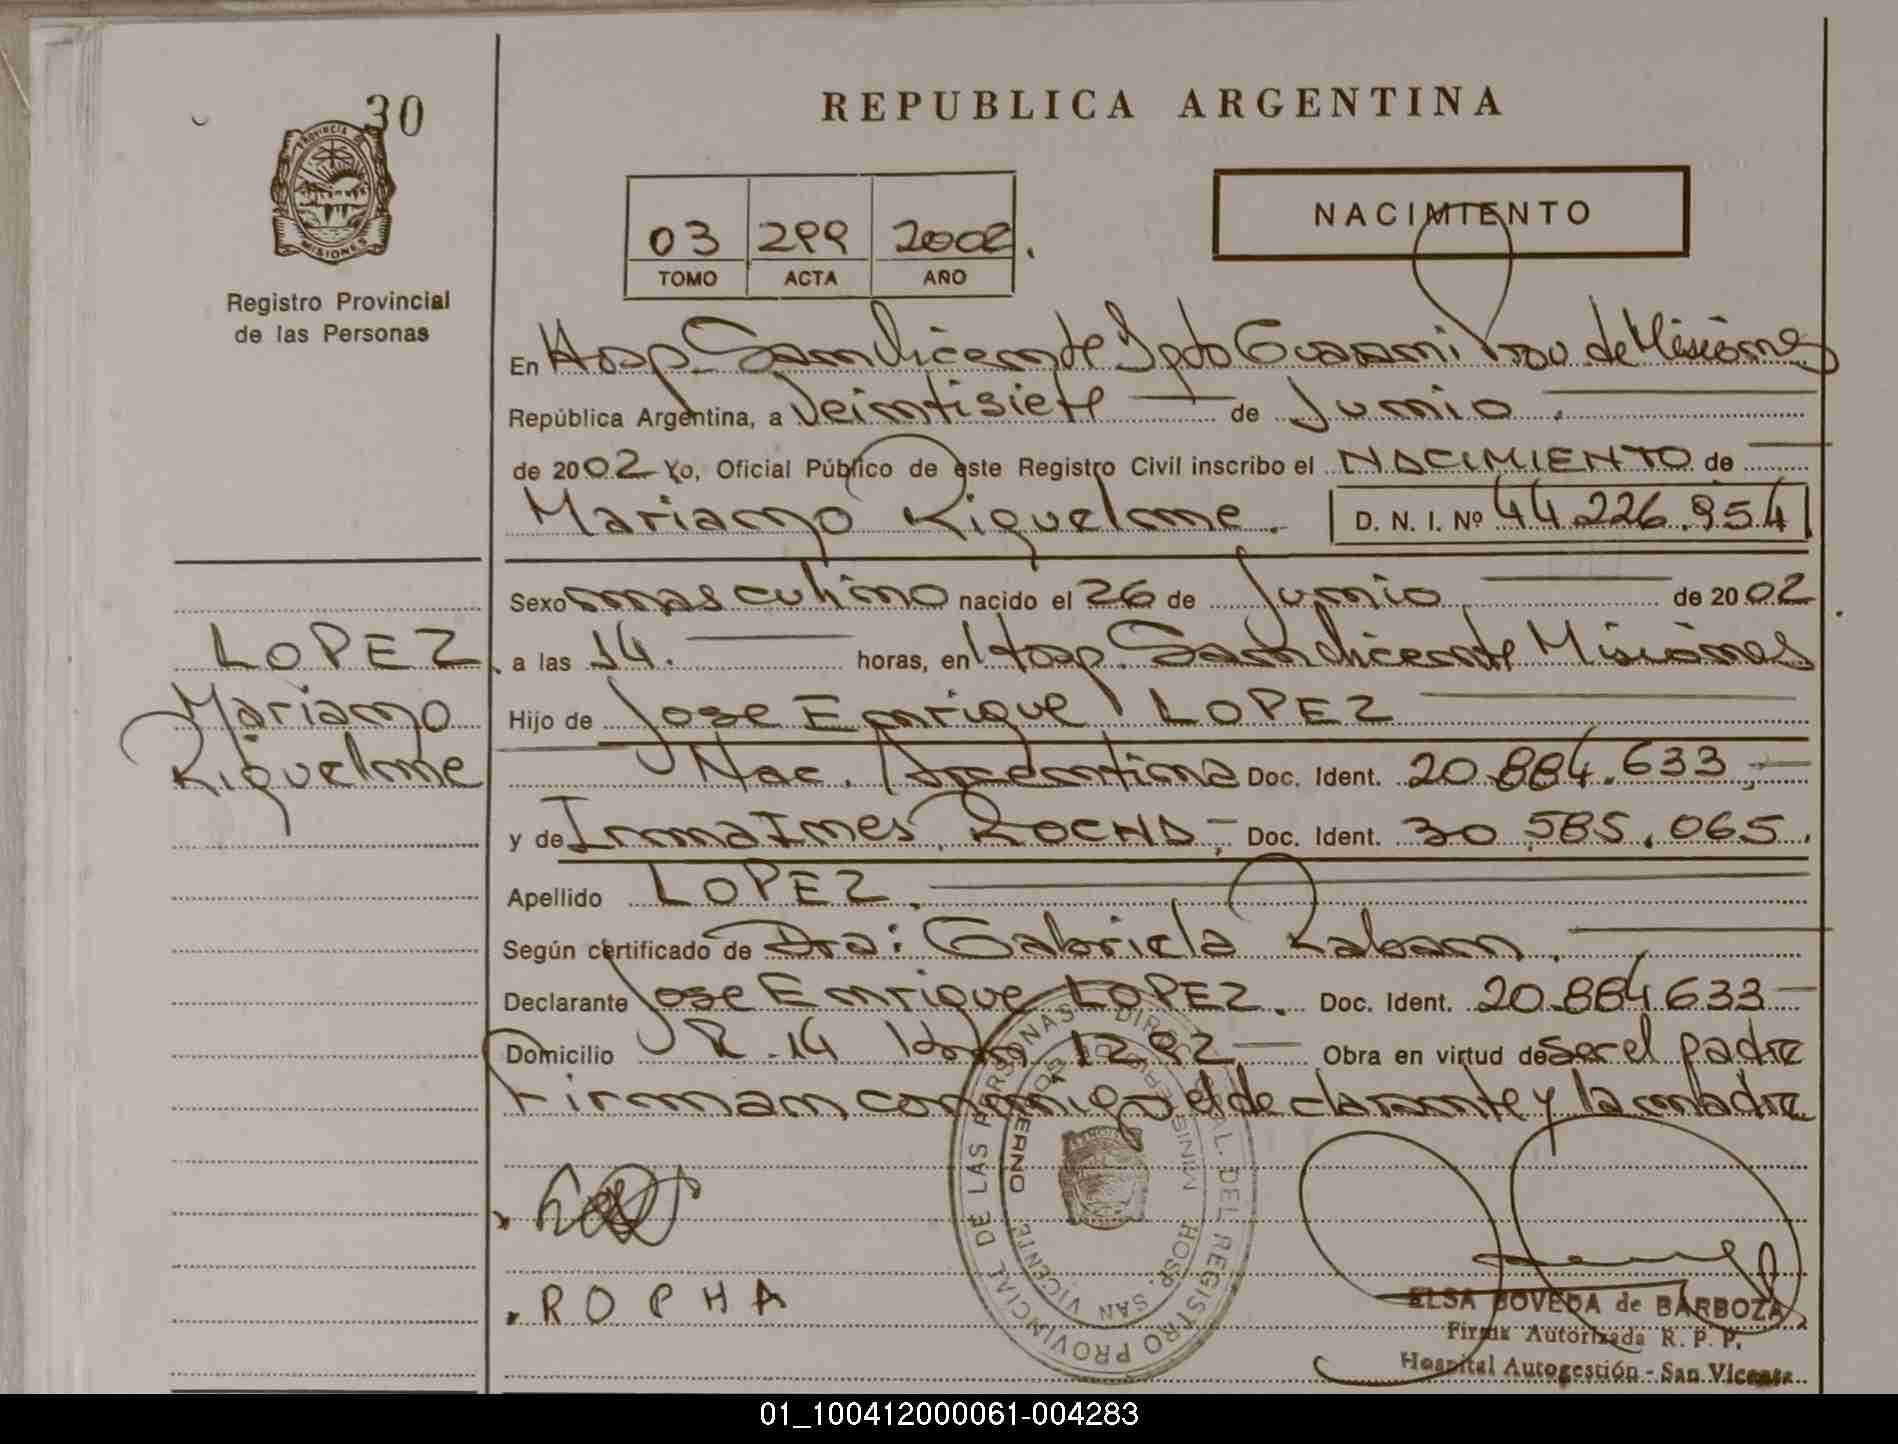 30
PROVINCIA DE
MISIONES
Registro Provincial
de las Personas
REPUBLICA ARGENTINA
03 299 2002.
TOMO ACTA AÑO
NACIMIENTO
En Hosp. San Vicente Dpto Guarani Prov. de Misiones
República Argentina, a Veintisiete de Junio.
de 2002 Yo, Oficial Público de este Registro Civil inscribo el NACIMIENTO de
Mariano Riquelme. D. N. I. Nº 44.226.954
Sexo masculino nacido el 26 de Junio de 2002.
LOPEZ
Mariano
Riquelme
a las 14. horas, en Hosp. San Vicente Misiones
Hijo de Jose Enrique LOPEZ
Nac. Argentina Doc. Ident. 20.884.633,-
y de Irma Ines ROCHA- Doc. Ident. 30.585.065.
Apellido LOPEZ.
Según certificado de Dra: Gabriela Raban.
Declarante Jose Enrique LOPEZ. Doc. Ident. 20.884.633-
Domicilio R. 14 Km. 1292 Obra en virtud de Ser el padre
Firman conmigo el declarante y la madre
DIRECCION GRAL. DEL REGISTRO PROVINCIAL DE LAS PERSONAS
MINISTERIO DE GOBIERNO
HOSP. SAN VICENTE
ROCHA
ELSA BOVEDA de BARBOZA
Firma Autorizada R. P. P.
Hospital Autogestión - San Vicente
01_100412000061-004283